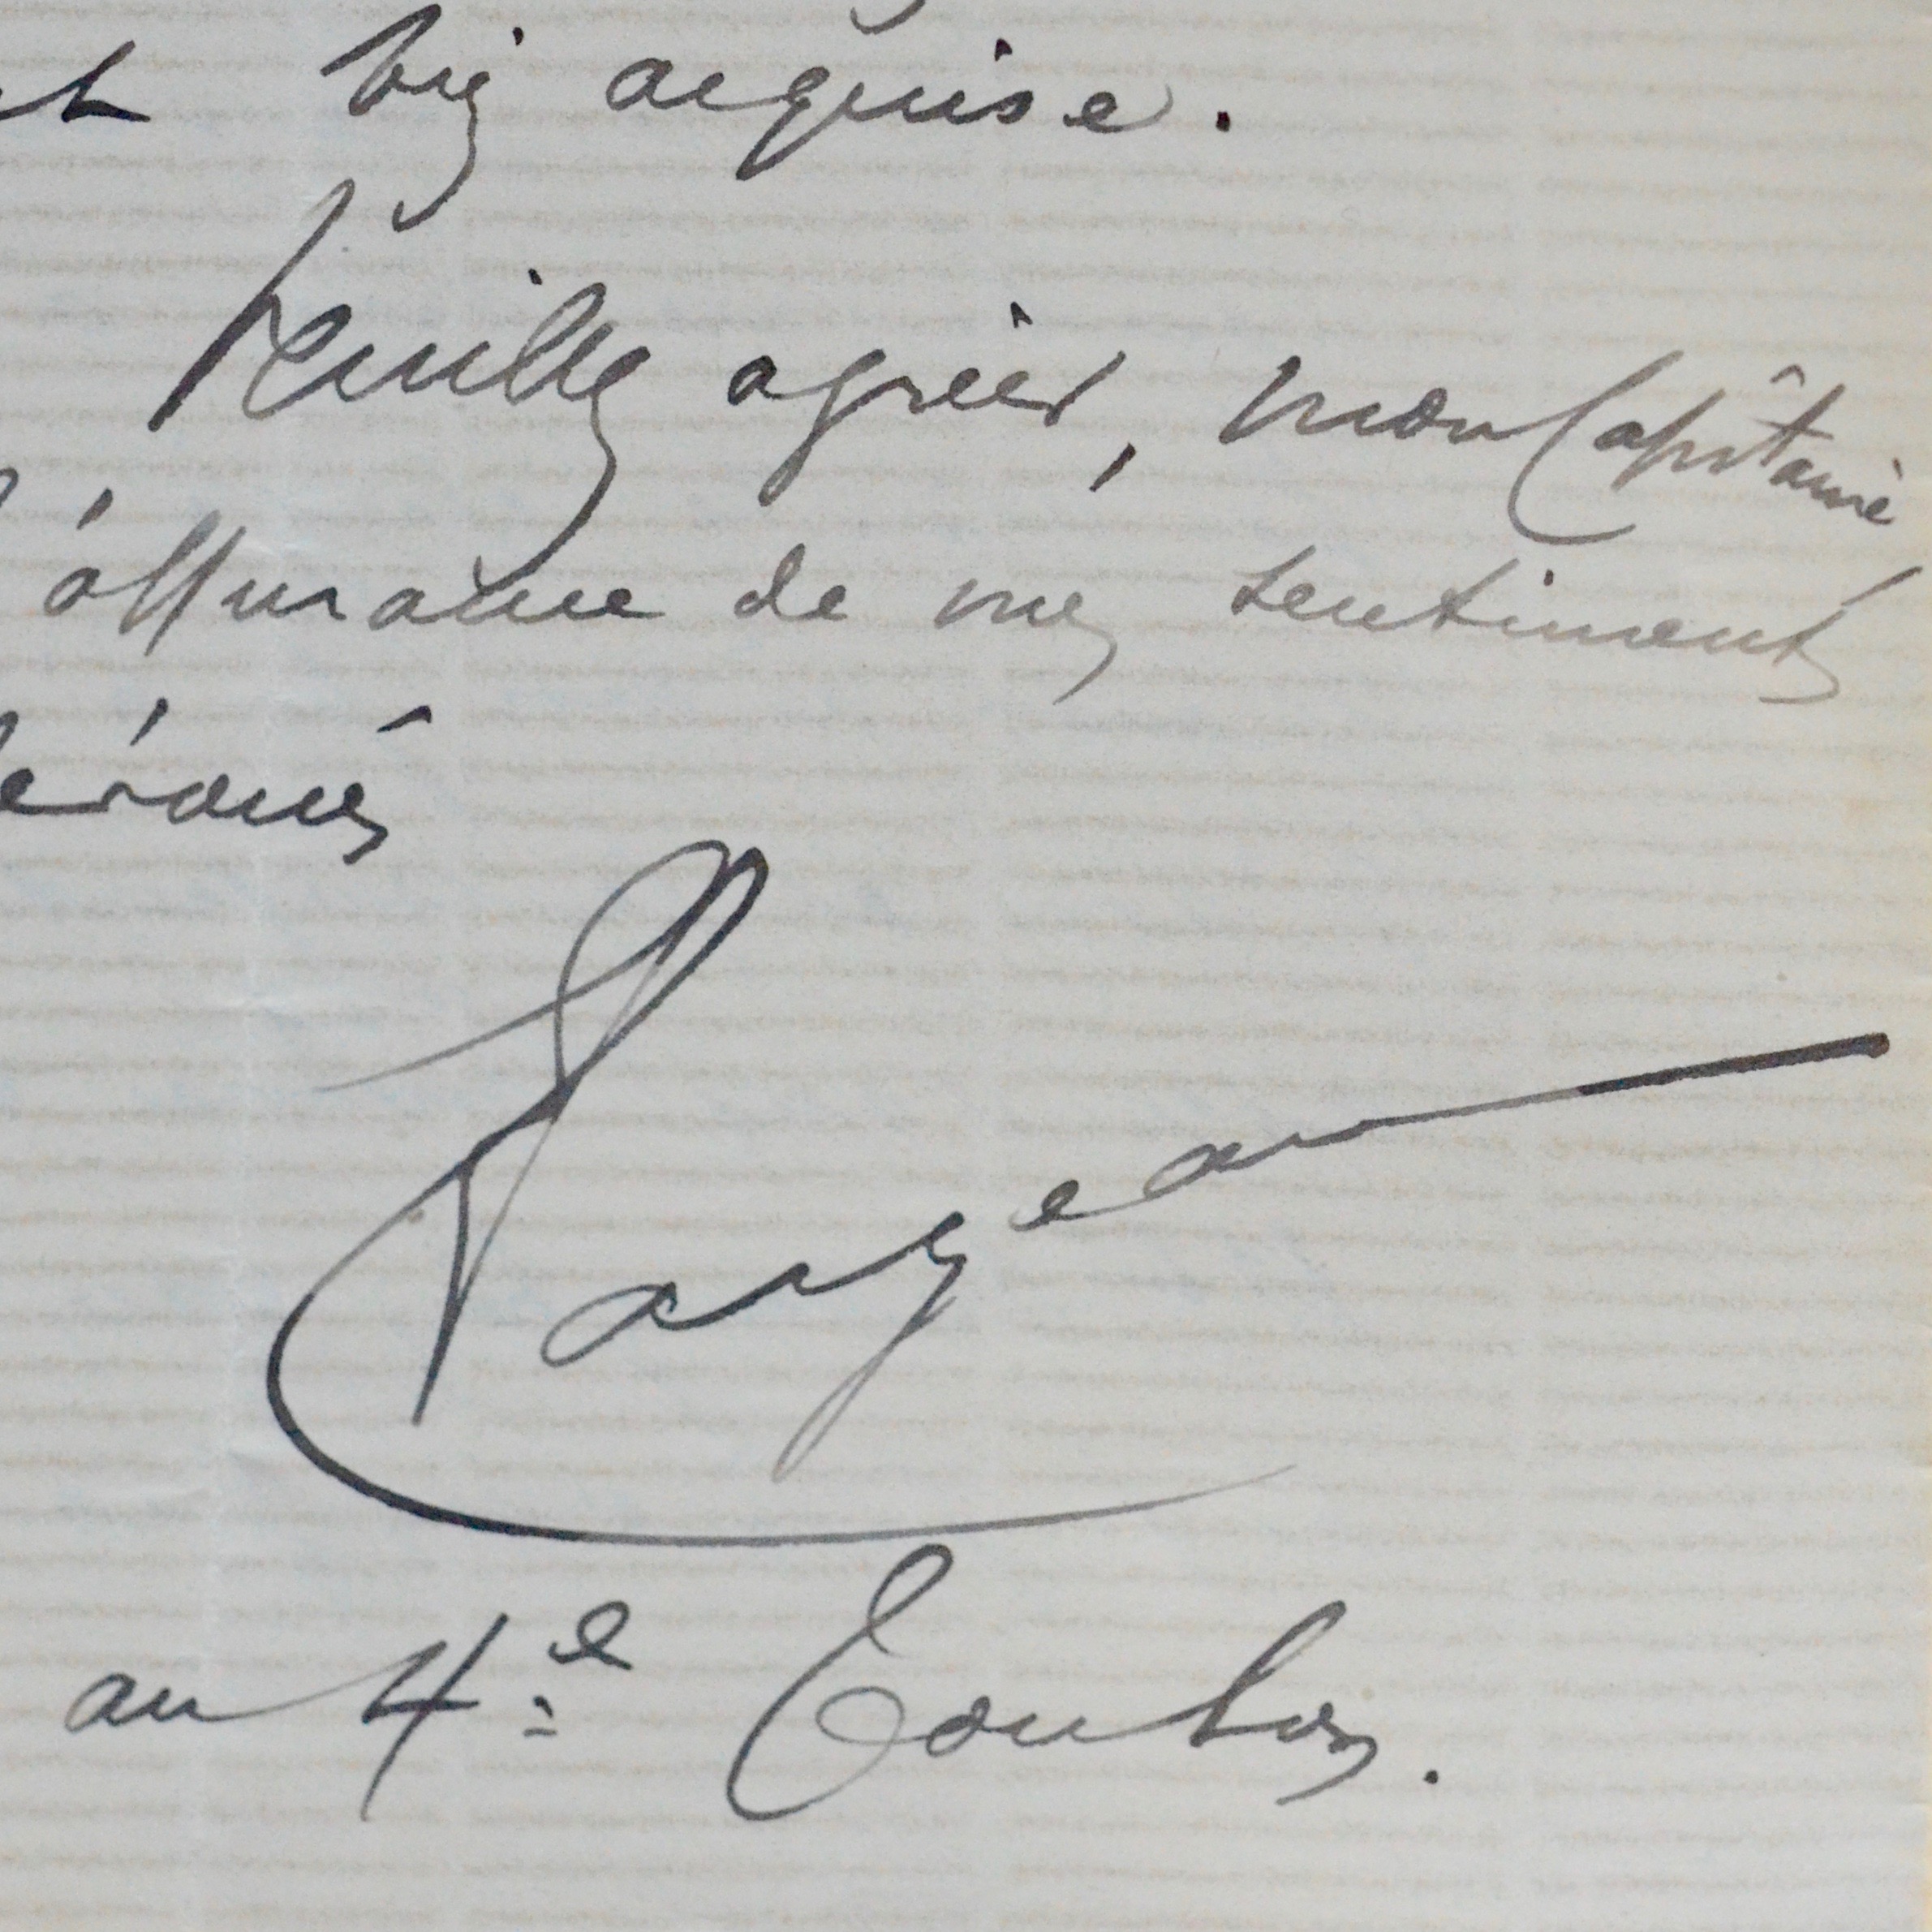 bien acquise.
Veuillez agréer, mon Capitaine
l'assurance de mes sentiments
dévoués
au 4e Toulon.